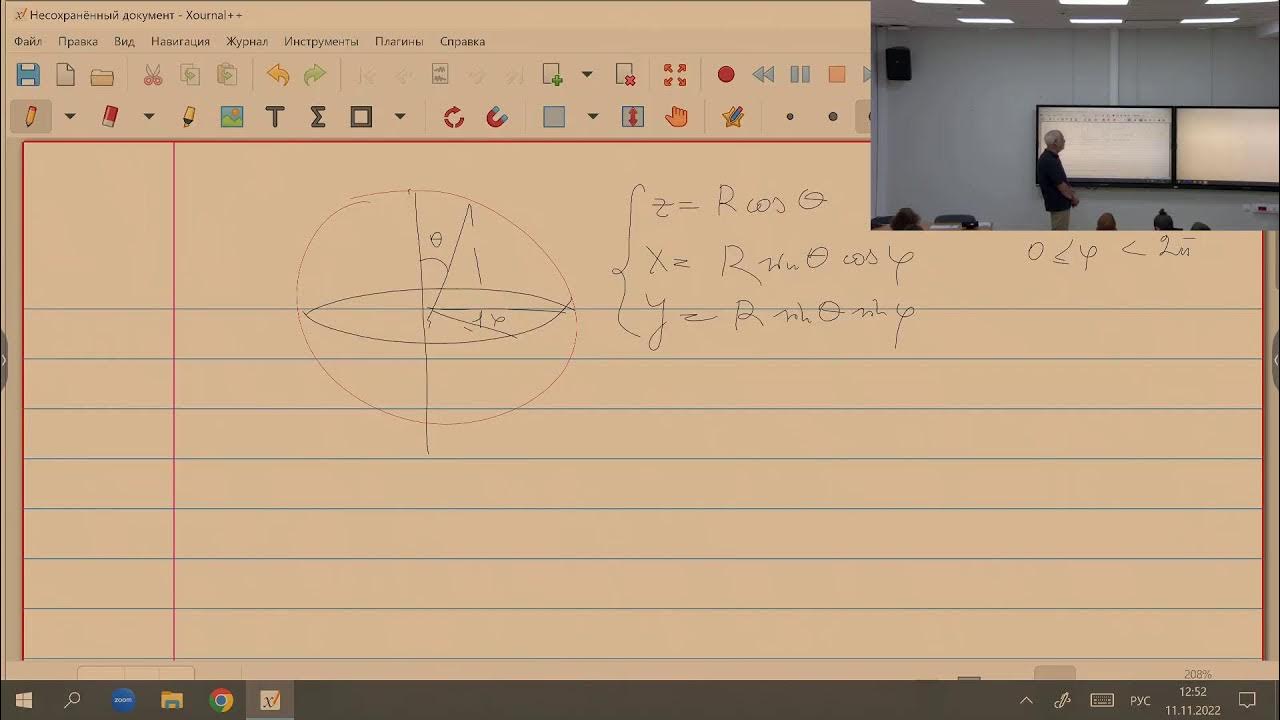 Несохранённый документ - Xournal++
Файл Правка Вид Навигация Журнал Инструменты Плагины Справка
θ
φ
z = R cos θ
x = R sin θ cos φ
y = R sin θ sin φ
0 ≤ φ < 2π
208%
zoom
РУС
12:52
11.11.2022